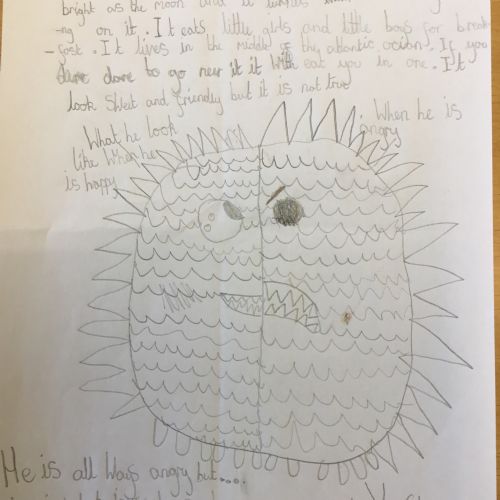 bright as the moon and it
-ng on it. It eats little girls and little boys for break
- fast. It lives in the middle of thy atlantic ocian!. If you
dare to go near it it will eat you in one. It
look Sweet and friendly but it is not true
What he look
like When he
is happy
When he is
angry
He is all Ways angry but....